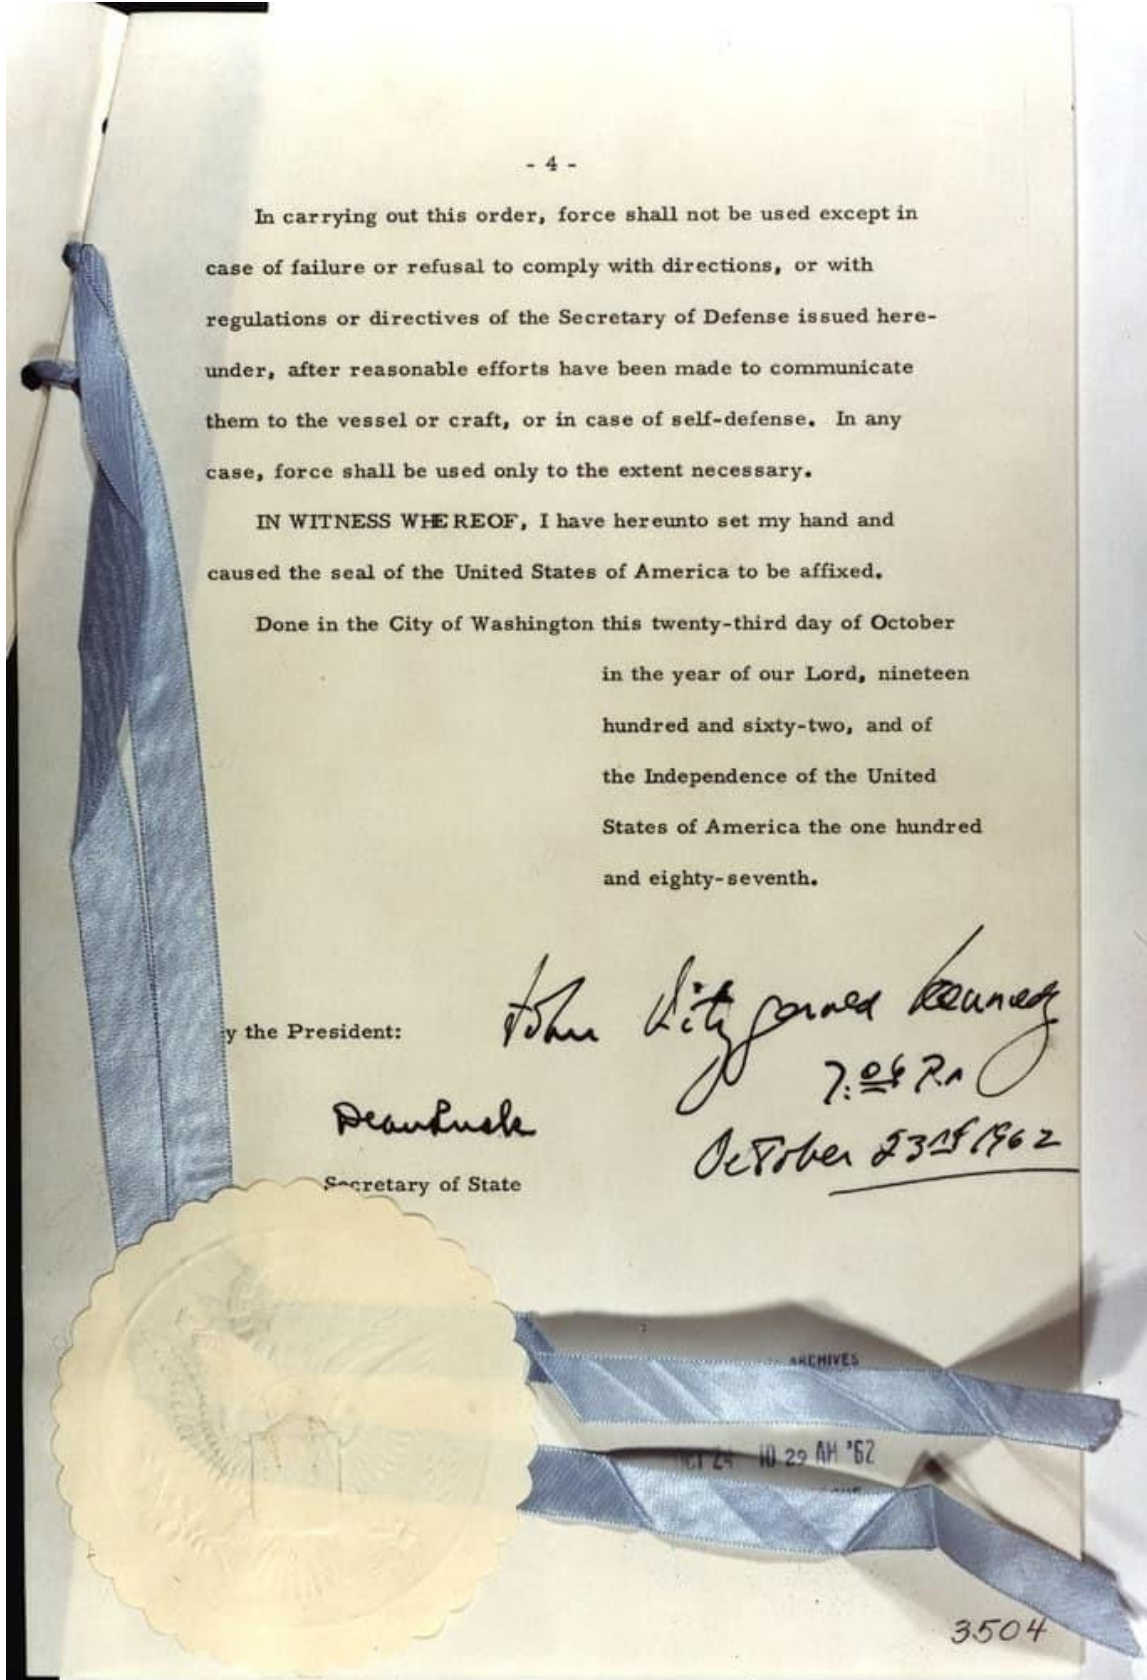 - 4 -
In carrying out this order, force shall not be used except in
case of failure or refusal to comply with directions, or with
regulations or directives of the Secretary of Defense issued here-
under, after reasonable efforts have been made to communicate
them to the vessel or craft, or in case of self-defense. In any
case, force shall be used only to the extent necessary.
IN WITNESS WHEREOF, I have hereunto set my hand and
caused the seal of the United States of America to be affixed.
Done in the City of Washington this twenty-third day of October
in the year of our Lord, nineteen
hundred and sixty-two, and of
the Independence of the United
States of America the one hundred
and eighty-seventh.
John Fitzgerald Kennedy
y the President:
7:06 P.m
Dean Rusk
October 23rd 1962
Secretary of State
ARCHIVES
OCT 24 10 29 AM '62
3504